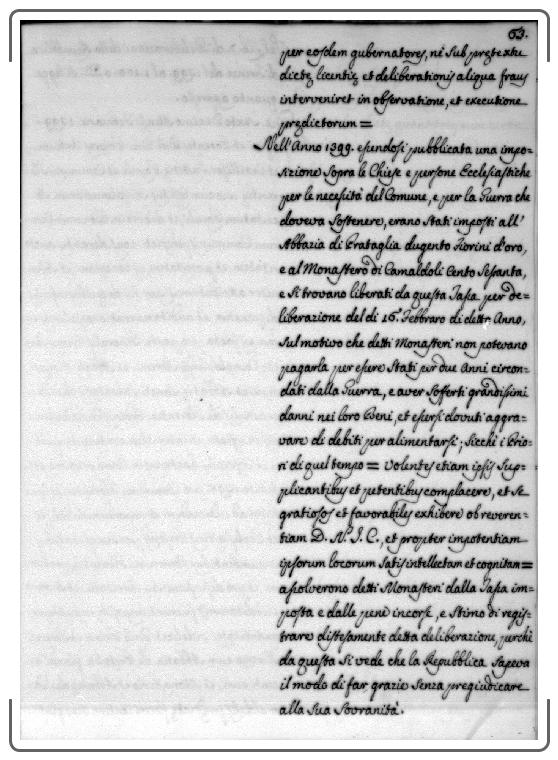 63.
per eosdem gubernatores, ne sub prętextu
dictę licentię et deliberationis aliqua fraus
interveniret in observatione, et executione
prędictorum =
Nell'Anno 1399. essendosi pubblicata una impo=
sizione sopra le Chiese e persone Ecclesiastiche
per le necessità del Comune, e per la Guerra che
doveva sostenere, erano stati imposti all'
Abbazia di Prataglia dugento Fiorini d'oro,
e al Monastero di Camaldoli Cento sessanta,
e si trovano liberati da questa Tassa per de=
liberazione del dì 16. Febbraro di detto Anno,
sul motivo che detti Monasteri non potevano
pagarla per essere stati per due Anni circon=
dati dalla Guerra, e aver sofferti grandissimi
danni nei loro Beni, et essersi dovuti aggra=
vare di debiti per alimentarsi; sicchè i Prio=
ri di quel tempo = volentes etiam ipsis sup=
plicantibus et petentibus complacere, et se
gratiosos et favorabiles exhibere ob reveren=
tiam D. N. J. C., et propter impotentiam
ipsorum locorum satis intellectam et cognitam =
assolverono detti Monasteri dalla Tassa im=
posta e dalle pene incorse, e stimo di regis=
trare distesamente detta deliberazione, perchè
da questa si vede che la Repubblica sapeva
il modo di far grazie senza pregiudicare
alla sua Sovranità.